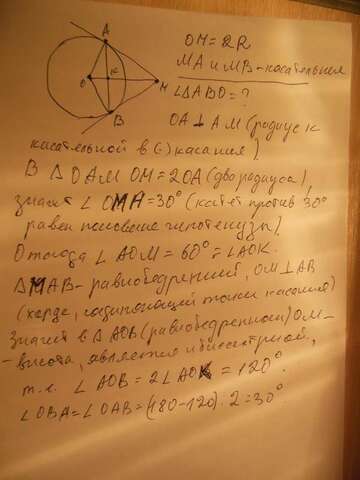 A
O
K
M
B
OM = 2R
MA и MB - касательные
∠ABO = ?
OA ⊥ AM (радиус к
касательной в (·) касания).
В Δ OAM OM = 2OA (два радиуса),
значит ∠ OMA = 30° (катет против 30°
равен половине гипотенузы).
Отсюда ∠ AOM = 60° = ∠AOK.
ΔMAB - равнобедренный, OM ⊥ AB
(хорде, соединяющей точки касания)
Значит в Δ AOB (равнобедренном) OM -
- высота, является и биссектрисой,
т.е. ∠ AOB = 2∠AOK = 120°.
∠OBA = ∠OAB = (180-120) : 2 = 30°.